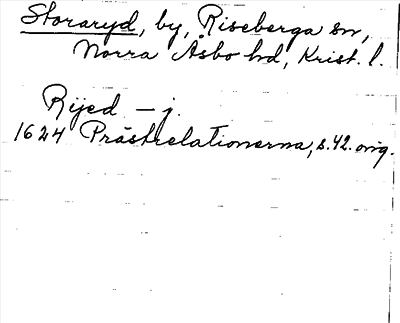 Storaryd, by, Riseberga sn,
Norra Åsbo hd, Krist. l.
Rijed - j.
1624 Prästrelationerna, s. 42. orig.